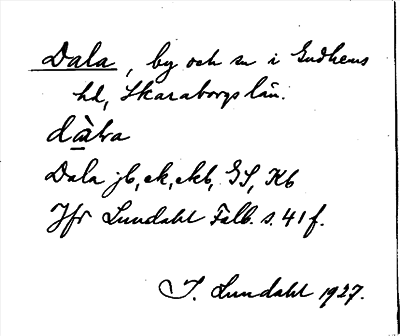 Dala, by och sn i Gudhems
hd, Skaraborgs län.
dàla
Dala jb, ek, ekb, GS, Kb
Jfr Lundahl Falb. s. 41 f.
I. Lundahl 1927.